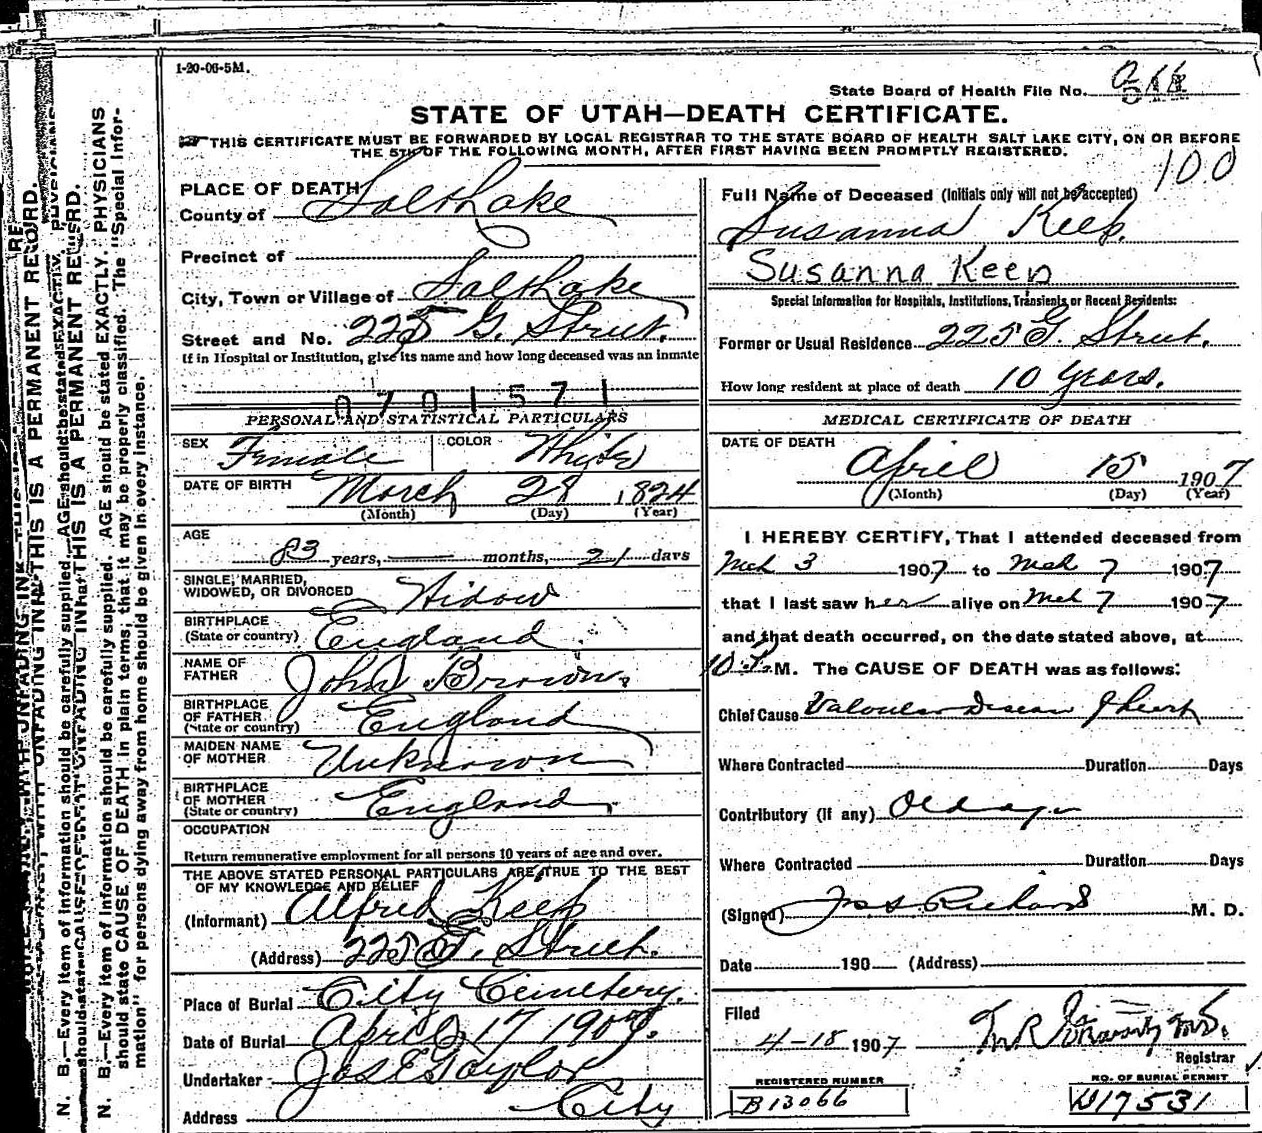 1-20-06-5M.
State Board of Health File No.
STATE OF UTAH—DEATH CERTIFICATE.
THIS CERTIFICATE MUST BE FORWARDED BY LOCAL REGISTRAR TO THE STATE BOARD OF HEALTH SALT LAKE CITY, ON OR BEFORE
THE 5TH OF THE FOLLOWING MONTH, AFTER FIRST HAVING BEEN PROMPTLY REGISTERED.
100
PLACE OF DEATH
County of Salt Lake
Precinct of
City, Town or Village of Salt Lake
Street and No. 225 G. Street.
If in Hospital or Institution, give its name and how long deceased was an inmate
0701571
PERSONAL AND STATISTICAL PARTICULARS
SEX Female COLOR White
DATE OF BIRTH March 28 1824
(Month) (Day) (Year)
AGE
83 years, months, 21 days
SINGLE, MARRIED,
WIDOWED, OR DIVORCED Widow
BIRTHPLACE
(State or country) England
NAME OF
FATHER John Brown.
BIRTHPLACE
OF FATHER
(State or country) England
MAIDEN NAME
OF MOTHER Unknown
BIRTHPLACE
OF MOTHER
(State or country) England
OCCUPATION
Return remunerative employment for all persons 10 years of age and over.
THE ABOVE STATED PERSONAL PARTICULARS ARE TRUE TO THE BEST
OF MY KNOWLEDGE AND BELIEF
(Informant) Alfred Keep
(Address) 225 G. Street.
Place of Burial City Cemetery.
Date of Burial April 17 1907.
Undertaker Jos E Taylor
Address City
Full Name of Deceased (Initials only will not be accepted)
Susanna Keep.
Susanna Keep
Special Information for Hospitals, Institutions, Transients, or Recent Residents:
Former or Usual Residence 225 G. Street.
How long resident at place of death 10 Years.
MEDICAL CERTIFICATE OF DEATH
DATE OF DEATH
April 15 1907
(Month) (Day) (Year)
I HEREBY CERTIFY, That I attended deceased from
Mch 3 1907 to Mch 7 1907
that I last saw her alive on Mch 7 1907
and that death occurred, on the date stated above, at
10 P. M. The CAUSE OF DEATH was as follows:
Chief Cause Valvular Disease of Heart
Where Contracted Duration Days
Contributory (if any) Old age
Where Contracted Duration Days
(Signed) Richards M. D.
Date 190 (Address)
Filed
4-18 1907
Registrar
REGISTERED NUMBER
B13066
NO. OF BURIAL PERMIT
D17531
N. B.—Every item of information should be carefully supplied. AGE should be stated EXACTLY. PHYSICIANS
should state CAUSE OF DEATH in plain terms, that it may be properly classified. The "Special Infor-
mation" for persons dying away from home should be given in every instance.
THIS IS A PERMANENT RECORD.